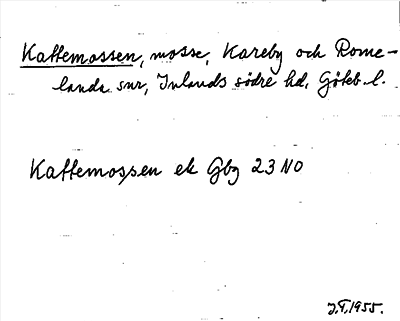 Kattemossen, mosse, Kareby och Rome-
landa snr, Inlands södre hd, Göteb. l.
Kattemossen ek Gbg 23 NO
J.T. 1955.